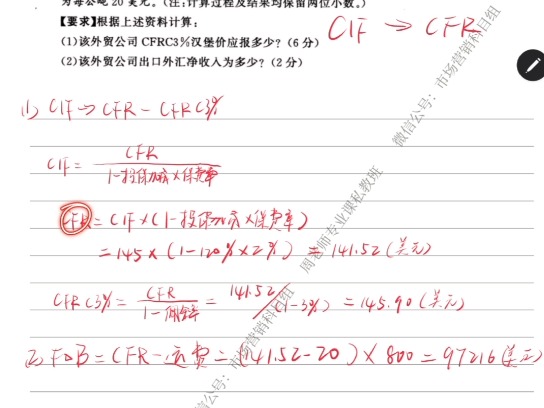 为每公吨20美元。(注:计算过程及结果均保留两位小数。)
【要求】根据上述资料计算:
(1)该外贸公司CFRC3%汉堡价应报多少?(6分)
CIF → CFR
(2)该外贸公司出口外汇净收入为多少?(2分)
(1) CIF → CFR - CFRC3%
CIF = CFR / 1-投保加成×保费率
CFR = CIF×(1-投保加成×保费率)
=145×(1-120%×2%) = 141.52 (美元)
CFRC3% = CFR / 1-佣金率 = 141.52/(1-3%) = 145.90 (美元)
(2) FOB = CFR - 运费 = (141.52-20)×800 = 97216 (美元)
微信公号:市场营销科目组
周老师专业课私教班
公号:市场营销科目组